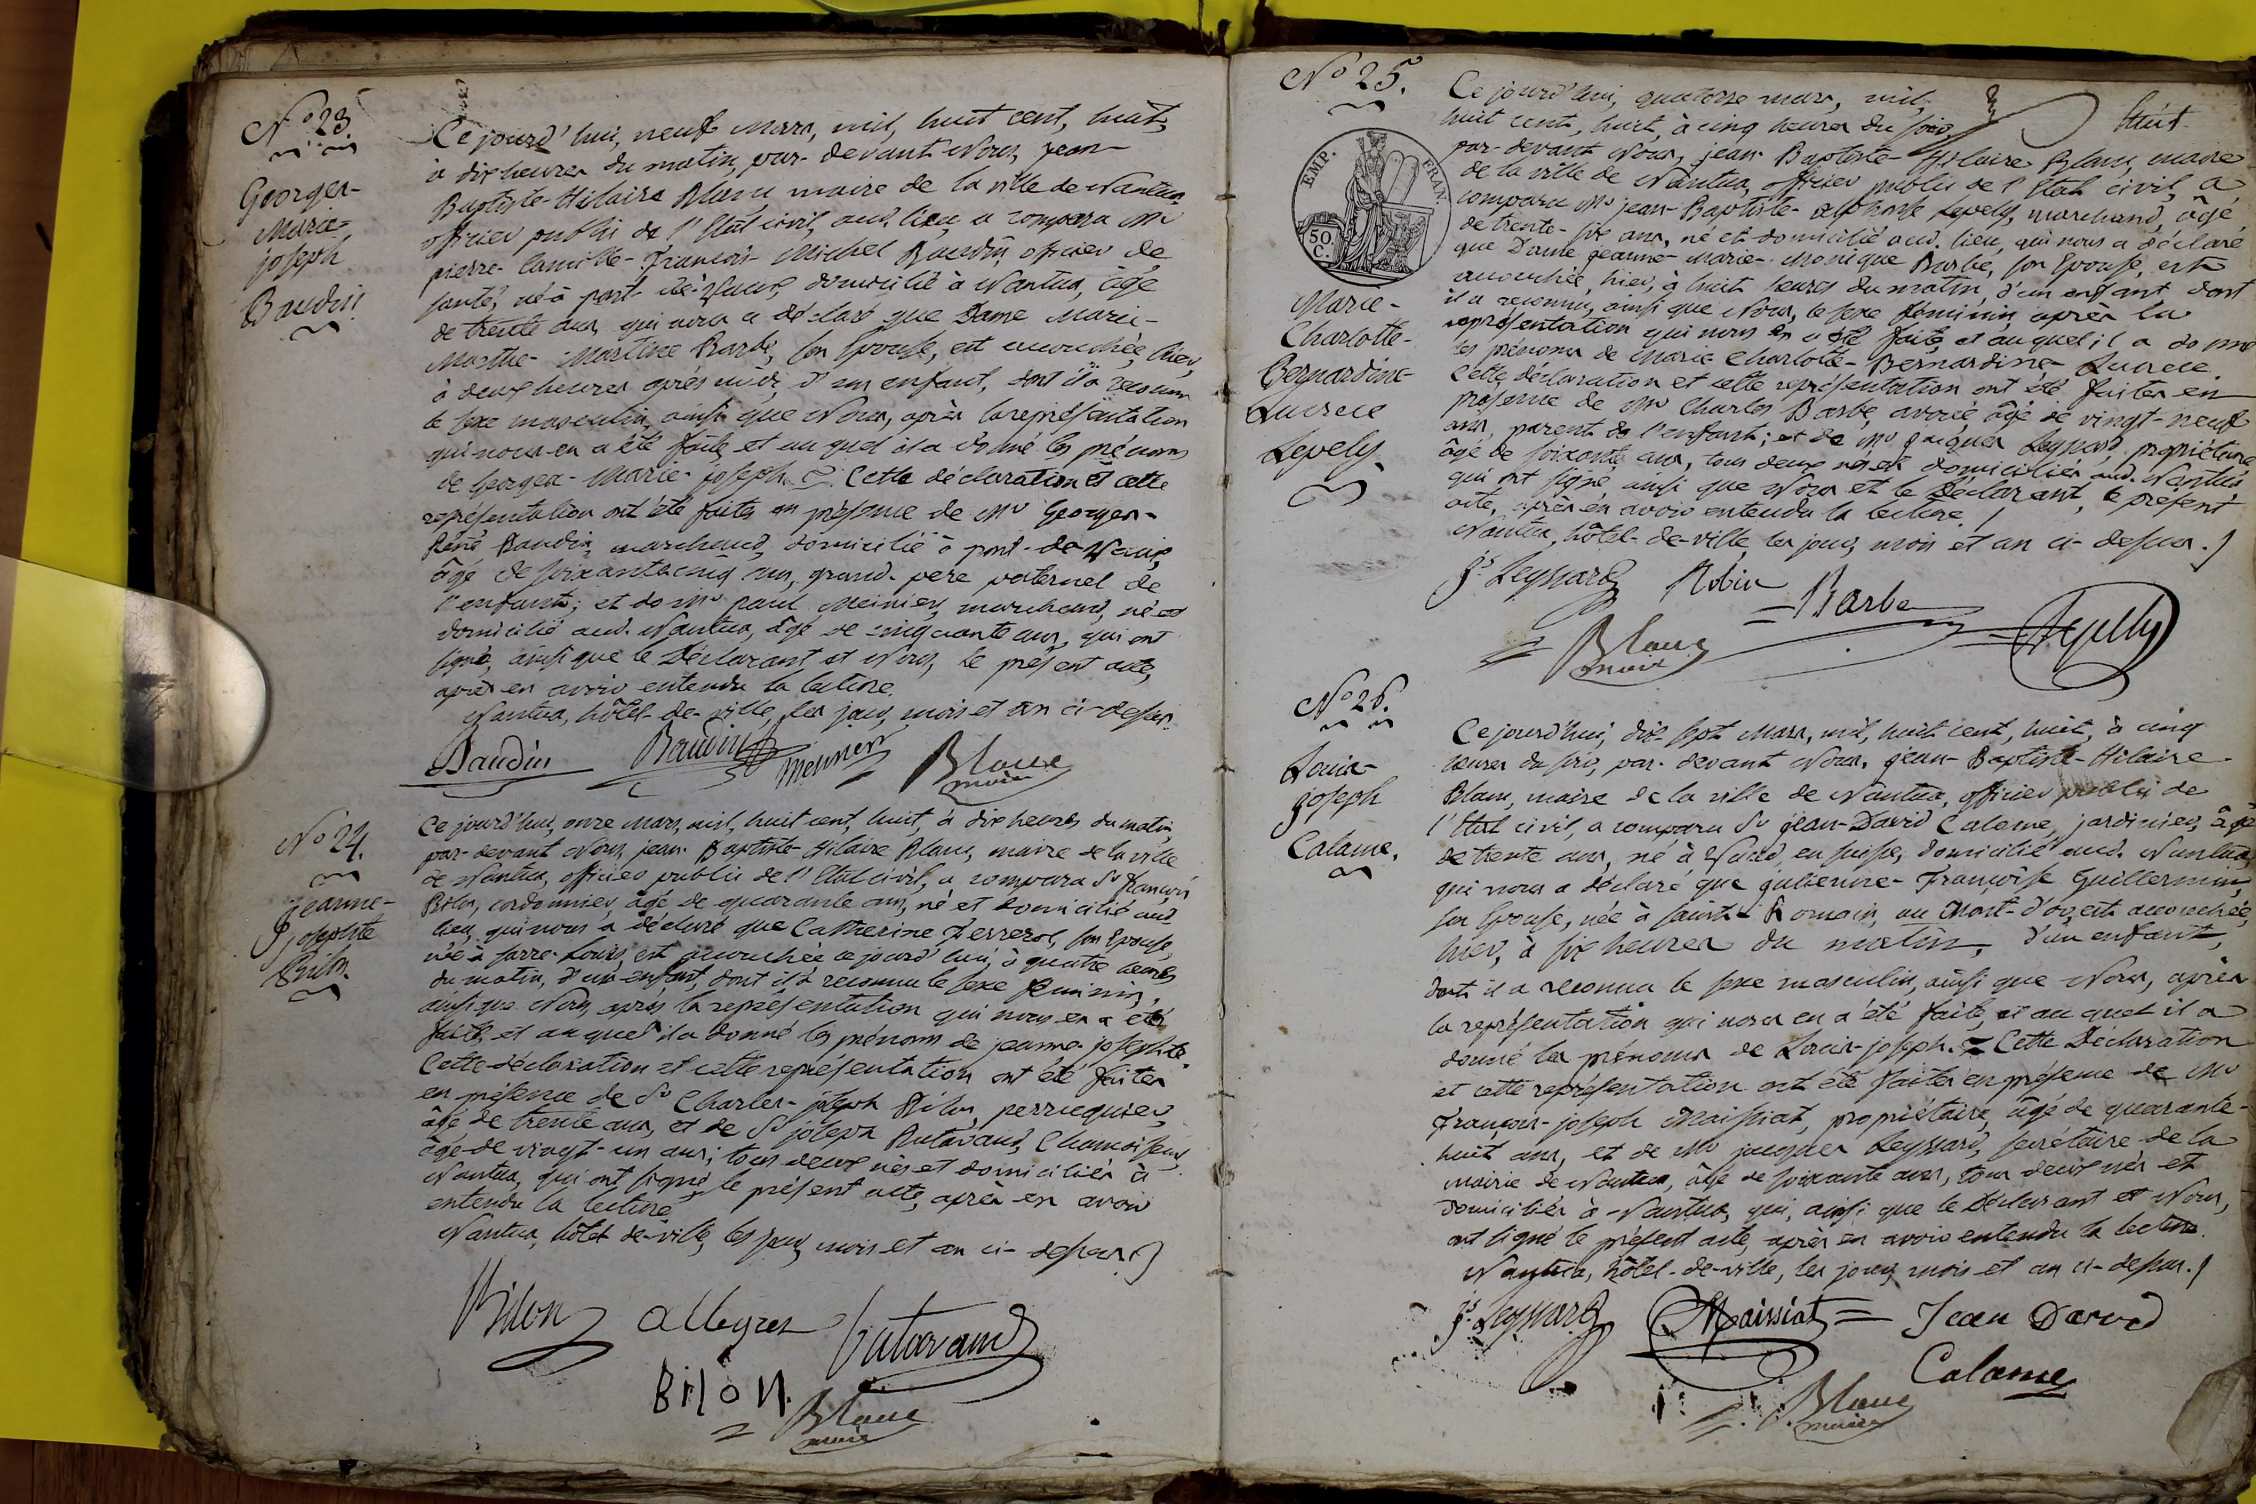 N.° 23.
Georges-
Marie-
joseph
Baudin
Ce jourd'hui, neuf mars, mil, huit cent, huit,
à dix heures du matin, par-devant Nous, jean-
Baptiste-Hilaire Blanc, maire de la ville de Nantua,
officier public de l'État civil, aud. lieu, a comparu Mr
pierre-Camille-François-Michel Baudin, officier de
santé, né à pont-de-Vaux, domicilié à Nantua, âgé
de trente ans, qui nous a déclaré que Dame Marie-
Marthe-Martine Barbe, son Épouse, est accouchée, hier,
à deux heures après midi, d'un enfant, dont il a reconnu
le sexe masculin, ainsi que Nous, après la représentation
qui nous en a été faite, et auquel il a donné les prénoms
de Georges-Marie-joseph. Cette déclaration et cette
représentation ont été faites en présence de Mr Georges-
René Baudin, marchand, domicilié à pont-de-Vaux,
âgé de soixante cinq ans, grand-père paternel de
l'enfant; et de Mr paul Meinier, marchand, né et
domicilié aud. Nantua, âgé de cinquante ans, qui ont
signé, ainsi que le Déclarant et Nous, le présent acte,
après en avoir entendu la lecture.
Nantua, hôtel-de-ville, les jour, mois et an ci-dessus.
Baudin Baudin Meinier Blanc
maire
N.° 24.
Jeanne-
josephte
Bilon.
Ce jourd'hui, onze mars, mil, huit cent, huit, à dix heures du matin,
par-devant Nous, jean-Baptiste-Hilaire Blanc, maire de la ville
de Nantua, officier public de l'État civil, a comparu Sr françois
Bilon, cordonnier, âgé de quarante ans, né et domicilié aud.
lieu, qui nous a déclaré que Catherine son Épouse,
née à est accouchée ce jourd'hui, à quatre heures
du matin, d'un enfant, dont il a reconnu le sexe féminin,
ainsi que Nous, après la représentation qui nous en a été
faite, et auquel il a donné les prénoms de jeanne-josephte.
Cette déclaration et cette représentation ont été faites
en présence de Sr Charles-joseph Bilon, perruquier,
âgé de trente ans, et de Sr joseph Butavand, Chamoiseur,
âgé de vingt-un ans; tous deux nés et domiciliés à
Nantua, qui ont signé le présent acte, après en avoir
entendu la lecture.
Nantua, hôtel-de-ville, les jour, mois et an ci-dessus.
Bilon Butavand
Bilon.
Blanc
maire
N.° 25.
EMP. FRAN.
50
C.
Marie-
Charlotte-
Bernardine-
Lucrece
Levely.
huit
Ce jourd'hui, quatorze mars, mil,
huit cent, huit, à cinq heures du soir,
par-devant Nous, jean-Baptiste-Hilaire Blanc, maire
de la ville de Nantua, officier public de l'État civil, a
comparu Mr jean-Baptiste-Alphonse Levely, marchand, âgé
de trente-six ans, né et domicilié aud. lieu, qui nous a déclaré
que Dame jeanne-Marie-Monique Barbe, son Épouse, est
accouchée, hier, à huit heures du matin, d'un enfant dont
il a reconnu, ainsi que Nous, le sexe féminin, après la
représentation qui nous en a été faite, et auquel il a donné
les prénoms de Marie-Charlotte-Bernardine-Lucrece.
Cette déclaration et cette représentation ont été faites en
présence de Mr Charles Barbe, avoué, âgé de vingt-neuf
ans, parent de l'enfant; et de Mr jacques Leynard, propriétaire
âgé de soixante ans, tous deux nés et domiciliés aud. Nantua,
qui ont signé ainsi que Nous et le Déclarant, le présent
acte, après en avoir entendu la lecture.
Nantua, hôtel-de-ville, les jour, mois et an ci-dessus.
Js Leynard Robin Barbe
Blanc
maire
N.° 26.
Louis-
joseph
Calame.
Ce jourd'hui, dix-sept mars, mil, huit cent, huit, à cinq
heures du soir, par-devant Nous, jean-Baptiste-Hilaire
Blanc, maire de la ville de Nantua, officier public de
l'État civil, a comparu Sr jean-David Calame, jardinier, âgé
de trente ans, né à en suisse, domicilié aud. Nantua,
qui nous a déclaré que julienne-Françoise Guillermin,
son Épouse, née à saint-Romain, au Mont-d'or, est accouchée,
hier, à six heures du matin, d'un enfant,
dont il a reconnu le sexe masculin, ainsi que Nous, après
la représentation qui nous en a été faite, et auquel il a
donné les prénoms de Louis-joseph. Cette Déclaration
et cette représentation ont été faites en présence de Mr
François-joseph Maissiat, propriétaire, âgé de quarante-
huit ans, et de Mr jacques Leynard, secrétaire de la
mairie de Nantua, âgé de soixante ans, tous deux nés et
domiciliés à Nantua, qui, ainsi que le Déclarant et Nous,
ont signé le présent acte, après en avoir entendu la lecture.
Nantua, hôtel-de-ville, les jour, mois et an ci-dessus.
Js Leynard Maissiat Jean David
Calame
Blanc
maire